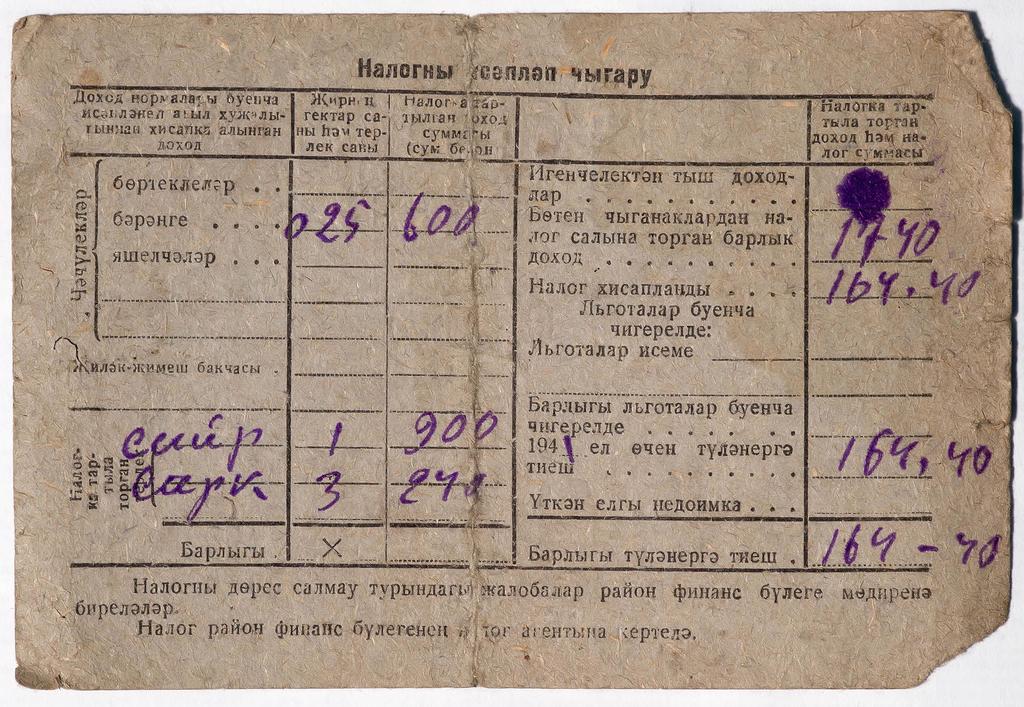 Налогны исәпләп чыгару
Доход нормалары буенча
исәпләнеп авыл хуҗалы-
гыннан хисапка алынган
доход
Җирнең
гектар са-
ны һәм тер-
лек саны
Налогка тар-
тылган доход
суммасы
(сум белән
Налогка тар-
тыла торган
доход һәм на-
лог суммасы
Чәчүлекләр
бөртеклеләр . .
бәрәңге . . . . 025 600
яшелчәләр . . .
Җиләк-җимеш бакчасы .
Налог-
ка тар-
тыла
торган
сыйр 1 900
сарк 3 240
Барлыгы . ×
Игенчелектән тыш доход-
лар . . . . . . . . . .
Бөтен чыганаклардан на-
лог салына торган барлык
доход . . . . . . . . . 1740
Налог хисапланды . . . . 164.40
Льготалар буенча
чигерелде:
Льготалар исеме
Барлыгы льготалар буенча
чигерелде . . . . . . .
1941 ел өчен түләнергә
тиеш . . . . . . . . . 164.40
Үткән елгы недоимка . . .
Барлыгы түләнергә тиеш . 164-40
Налогны дөрес салмау турындагы жалобалар район финанс бүлеге мөдиренә
биреләләр.
Налог район финанс бүлегенең налог агентына кертелә.